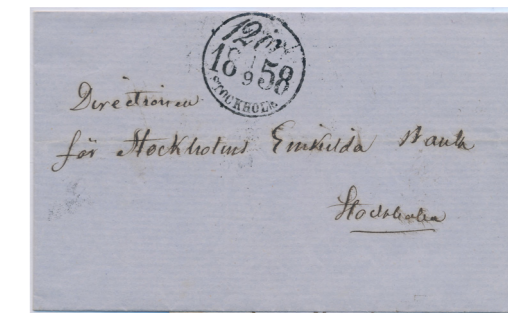 1858
9
STOCKHOLM
Directionen
för Stockholms Enskilda Bank
Stockholm